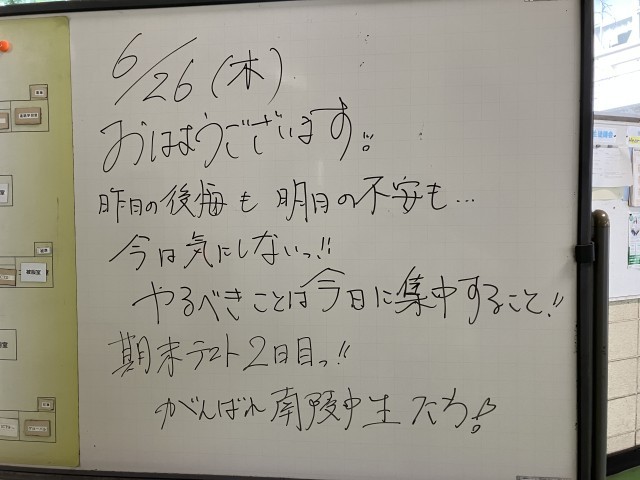 6/26(木)
おはようございます!!
昨日の後悔も 明日の不安も…
今は気にしないっ!!
やるべきことは今日に集中すること!!
期末テスト2日目っ!!
がんばれ南陵中生たち!